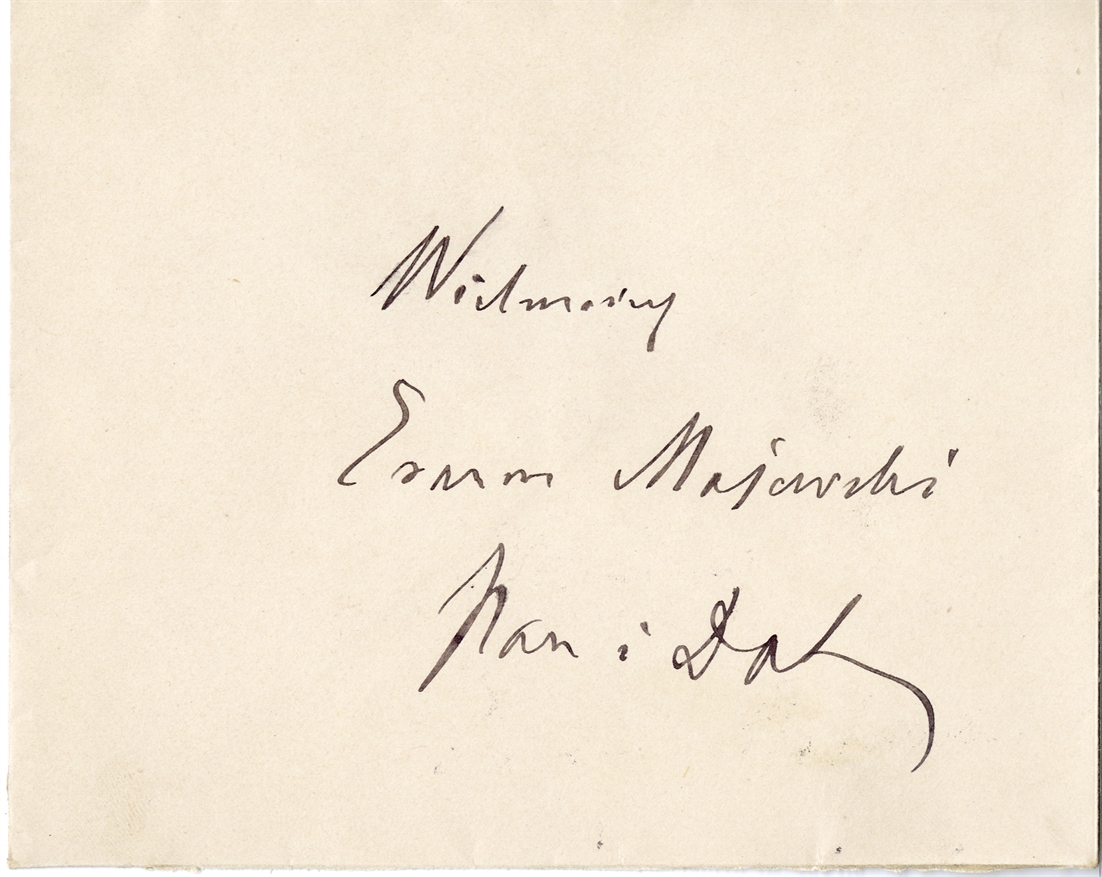 Wielmożny
Erazm Majewski
Pan i Dob